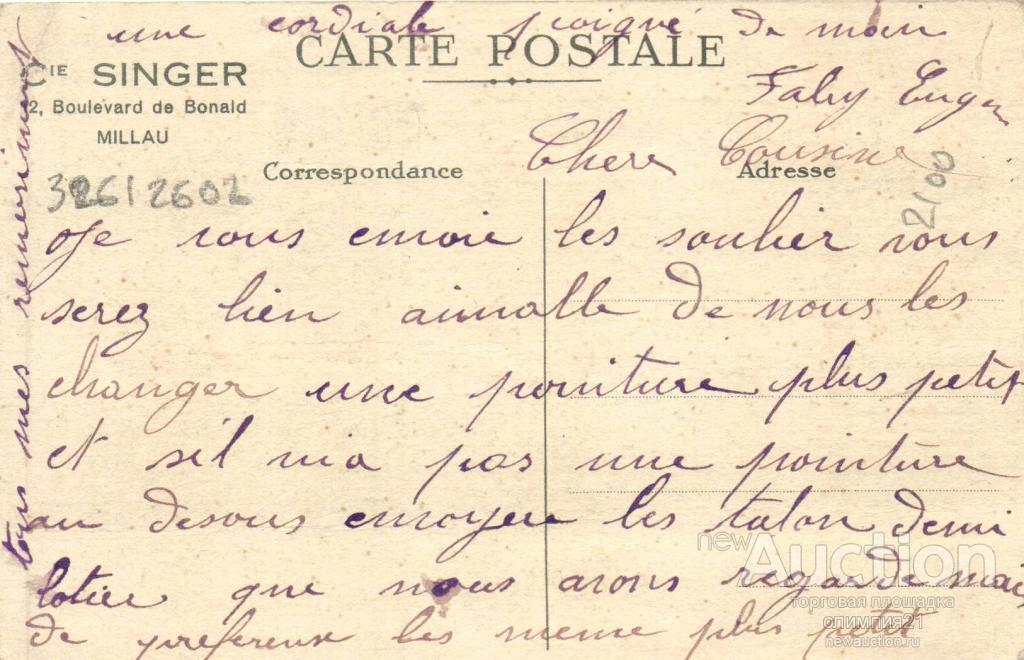 une cordiale poigné de main
CARTE POSTALE
Cie SINGER
2, Boulevard de Bonald
MILLAU
Faby Eugen
Chere Cousine
Correspondance
Adresse
32612602
2100
Je vous envoie les soulier vous
serez bien aimable de nous les
changer une pointure plus petit
et s'il nia pas une pointure
au desous envoyer les talon demi
que nous avons regarde mais
de prefereux les meme plus petit
tous mes
newAuction
торговая площадка
олимпия21
newauction.ru